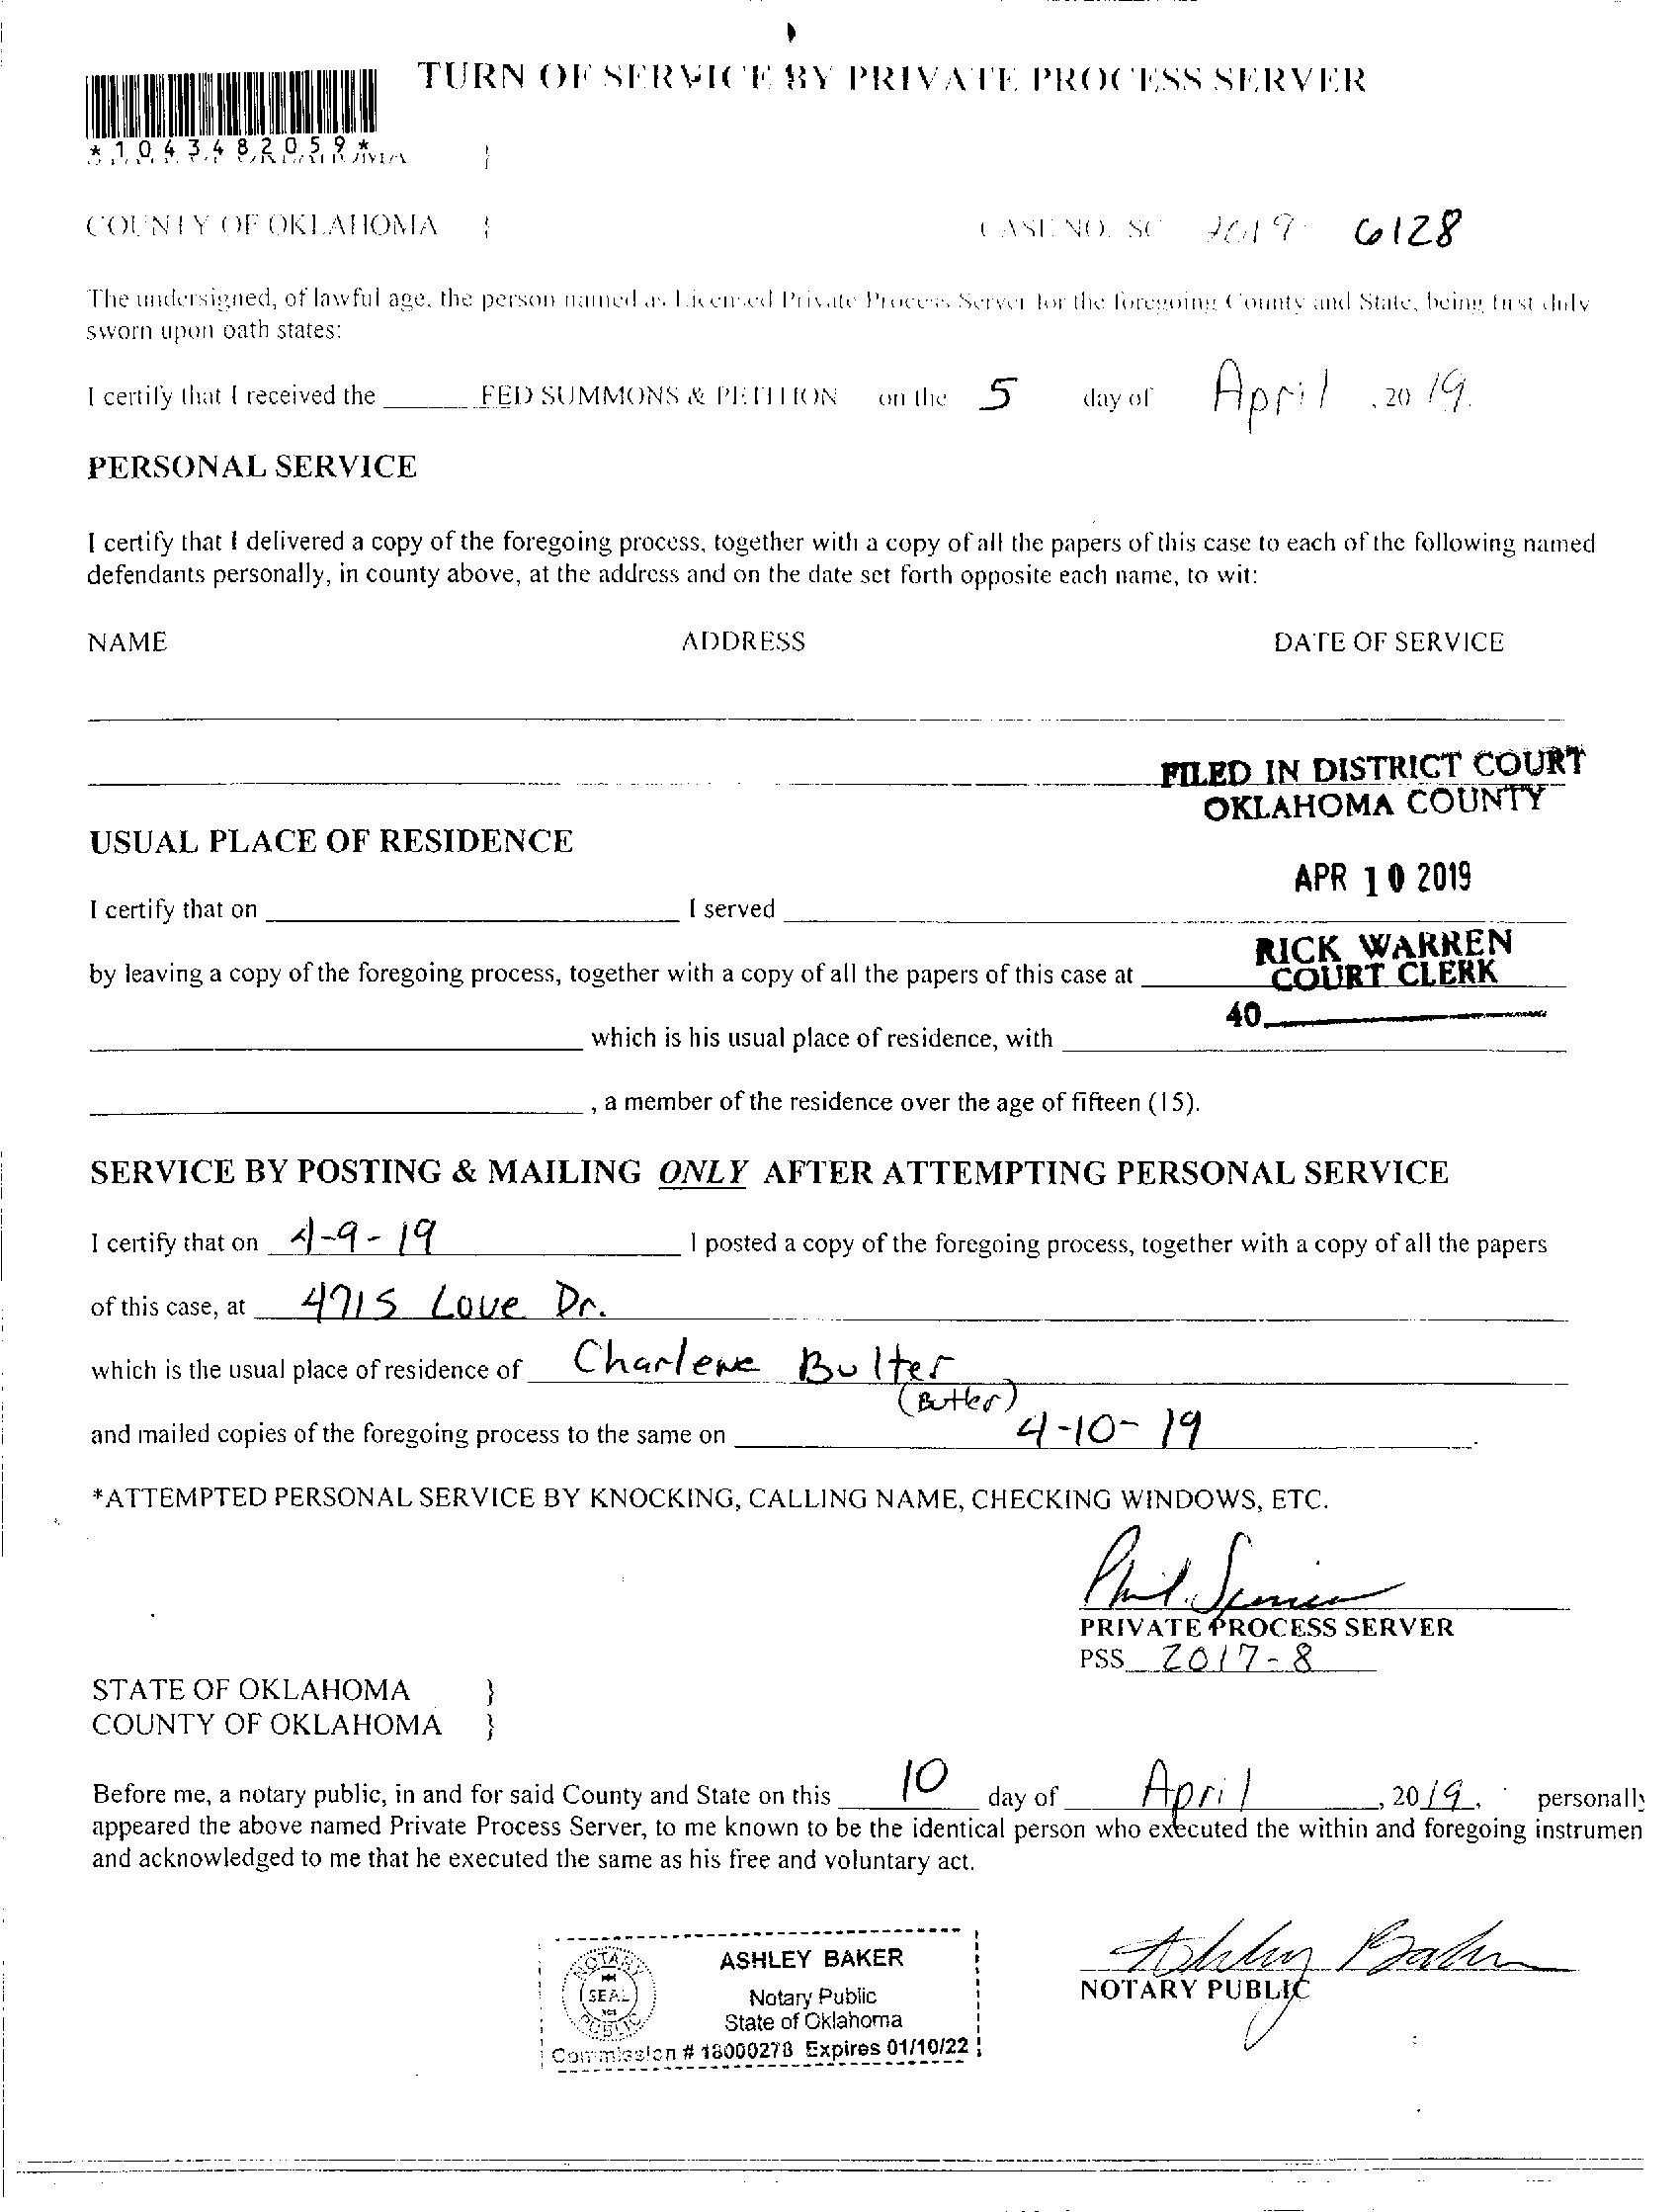 TURN OF SERVICE BY PRIVATE PROCESS SERVER
*1043482059*
COUNTY OF OKLAHOMA } CASE NO. SC 2019 6128
The undersigned, of lawful age, the person named as Licensed Private Process Server for the foregoing County and State, being first duly
sworn upon oath states:
I certify that I received the ______ FED SUMMONS & PETITION on the 5 day of April , 20 19.
PERSONAL SERVICE
I certify that I delivered a copy of the foregoing process, together with a copy of all the papers of this case to each of the following named
defendants personally, in county above, at the address and on the date set forth opposite each name, to wit:
NAME ADDRESS DATE OF SERVICE
FILED IN DISTRICT COURT
OKLAHOMA COUNTY
USUAL PLACE OF RESIDENCE
APR 10 2019
I certify that on ______ I served ______
RICK WARREN
COURT CLERK
by leaving a copy of the foregoing process, together with a copy of all the papers of this case at ______
40______
______ which is his usual place of residence, with ______
______ , a member of the residence over the age of fifteen (15).
SERVICE BY POSTING & MAILING ONLY AFTER ATTEMPTING PERSONAL SERVICE
I certify that on 4-9-19 I posted a copy of the foregoing process, together with a copy of all the papers
of this case, at 4715 Love Dr.
which is the usual place of residence of Charlene Bulter
(Butler)
and mailed copies of the foregoing process to the same on 4-10-19
*ATTEMPTED PERSONAL SERVICE BY KNOCKING, CALLING NAME, CHECKING WINDOWS, ETC.
PRIVATE PROCESS SERVER
PSS 2017-8
STATE OF OKLAHOMA }
COUNTY OF OKLAHOMA }
Before me, a notary public, in and for said County and State on this 10 day of April , 2019, personally
appeared the above named Private Process Server, to me known to be the identical person who executed the within and foregoing instrumen
and acknowledged to me that he executed the same as his free and voluntary act.
NOTARY
SEAL
PUBLIC
ASHLEY BAKER
Notary Public
State of Oklahoma
Commission # 18000278 Expires 01/10/22
Ashley Baker
NOTARY PUBLIC